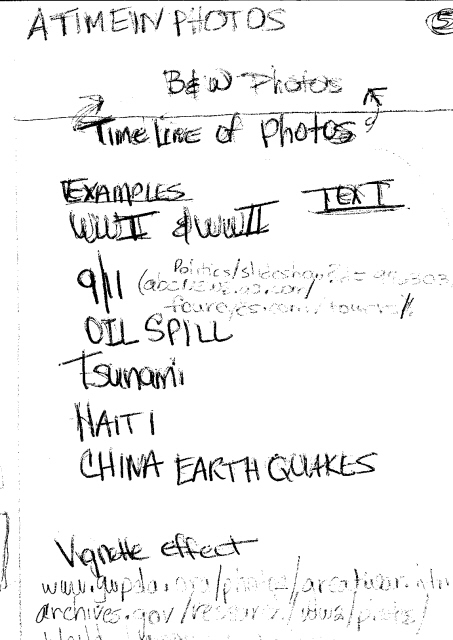 A TIME IN PHOTOS
5
B&W Photos
Time Line of Photos
EXAMPLES
TEXT
WWI & WWII
9/11 (
Politics/slideshow?id=
foureyes.com/
OIL SPILL
Tsunami
HAITI
CHINA EARTHQUAKES
Vignette effect
archives.gov/research/ww2/